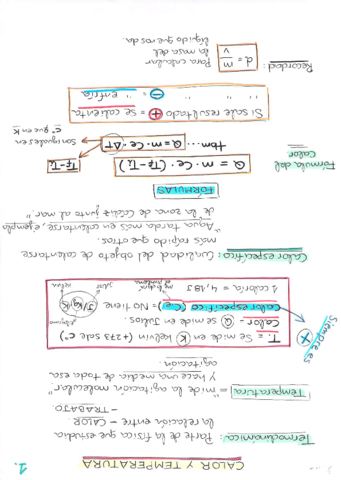 1.
CALOR Y TEMPERATURA
Termodinámica: Parte de la física que estudia
la relación entre - CALOR
- TRABAJO
Temperatura = "mide la agitación molecular"
y hace una media de toda esa
agitación
T. = Se mide en K kelvin (+273 sale Cº)
Calor. Q se mide en Julios.
Calor específico (Ce) = No tiene J/kg·K
1 caloría = 4,18 J
Siempre es +
Calor específico: Cualidad del objeto de calentarse
más rápido que otros
"Agua tarda más en calentarse, ejemplo
de la zona de Cádiz junto al mar"
FÓRMULAS
Fórmula del Calor
Q = m · Ce · (Tf - Ti)
tbm... Q = m · Ce · ΔT
Tf - Ti
Son iguales en
Cº que en K
Si sale resultado + = se calienta
" " " - = " enfría
Recordad: d = m/v
Para calcular
la masa del
líquido que nos da.